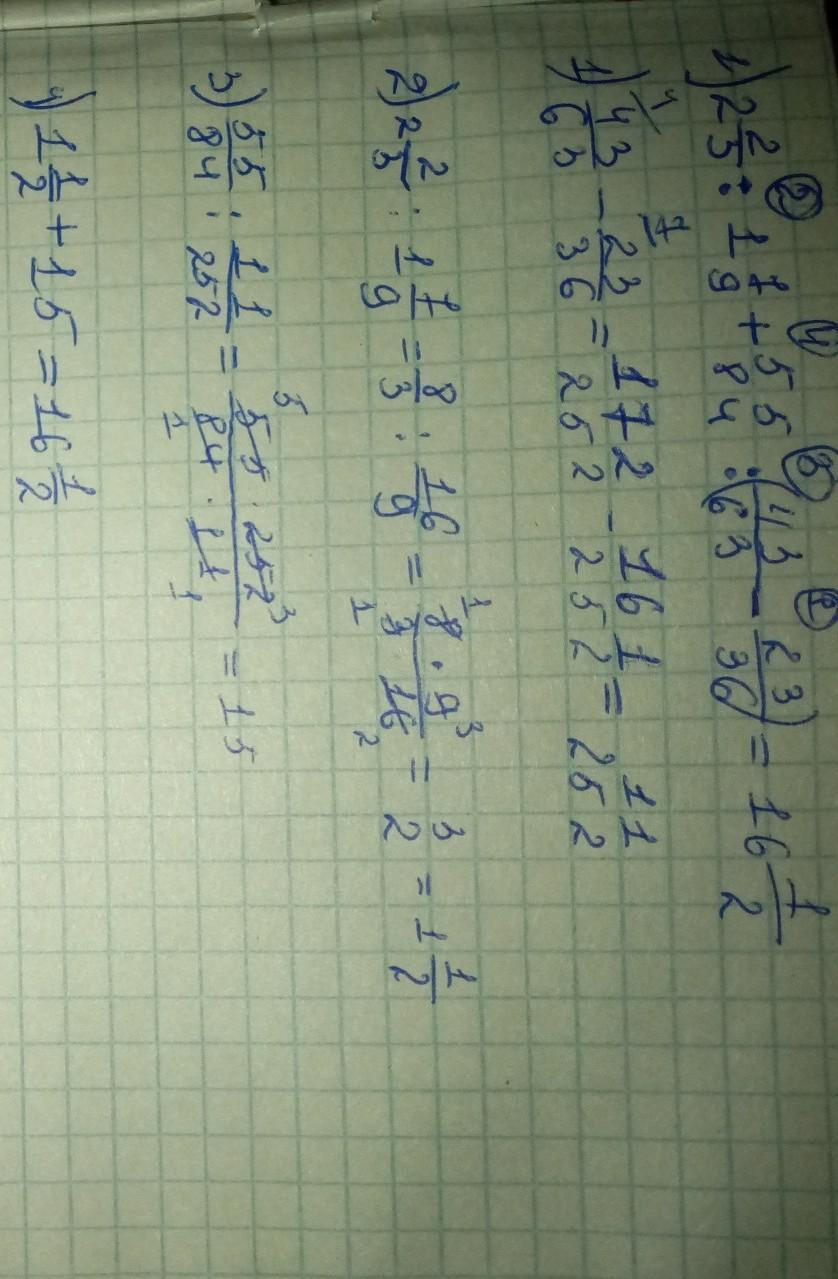 ② ④ ③ ①
1) 2 2/3 : 1 7/9 + 55/84 : (43/63 - 23/36) = 16 1/2
4 7
1) 43/63 - 23/36 = 172/252 - 161/252 = 11/252
2) 2 2/3 : 1 7/9 = 8/3 : 16/9 = 8 · 9/3 · 16 = 3/2 = 1 1/2
3) 55/84 : 11/252 = 55 · 252/84 · 11 = 15
4) 1 1/2 + 15 = 16 1/2